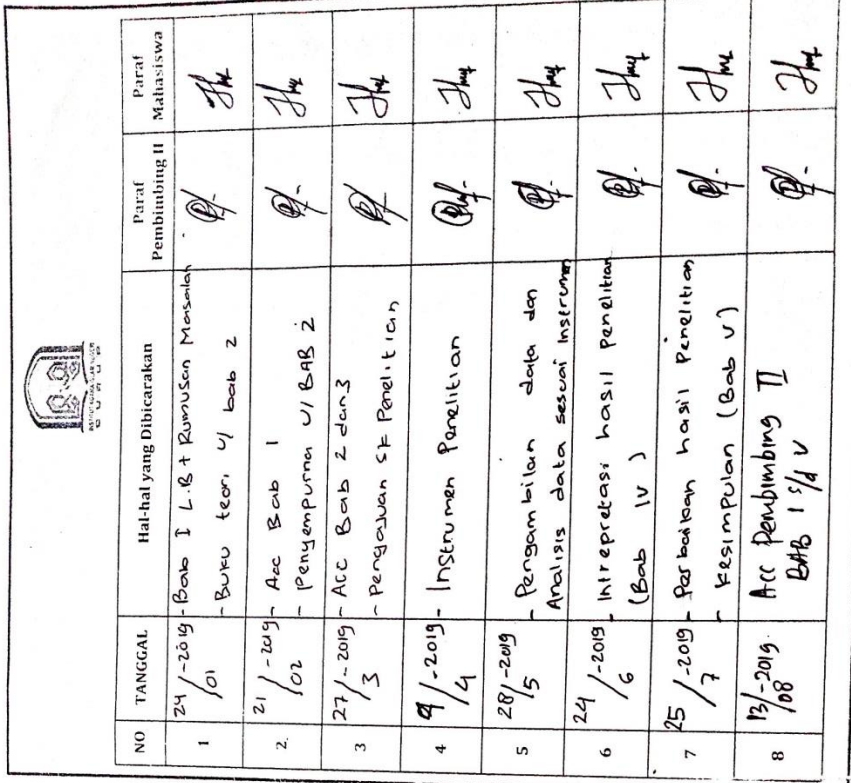 NO
TANGGAL
Hal-hal yang Dibicarakan
Paraf
Pembimbing II
Paraf
Mahasiswa
1
24/01-2019
- Bab I L.B + Rumusan Masalah
- Buku teori u/ bab 2
2.
21/02-2019
- Acc Bab 1
- Penyempurnaa u/ BAB 2
3
27/3-2019
- Acc Bab 2 dan 3
- Pengajuan SK Penelitian
4
9/4-2019
- Instrumen Penelitian
5
28/5-2019
- Pengambilan data dan
Analisis data sesuai Instrumen
6
24/6-2019
- Intrepretasi hasil Penelitian
(Bab IV)
7
25/7-2019
- Perbaikan hasil Penelitian
- Kesimpulan (Bab V)
8
13/08-2019.
Acc Pembimbing II
BAB I s/d V